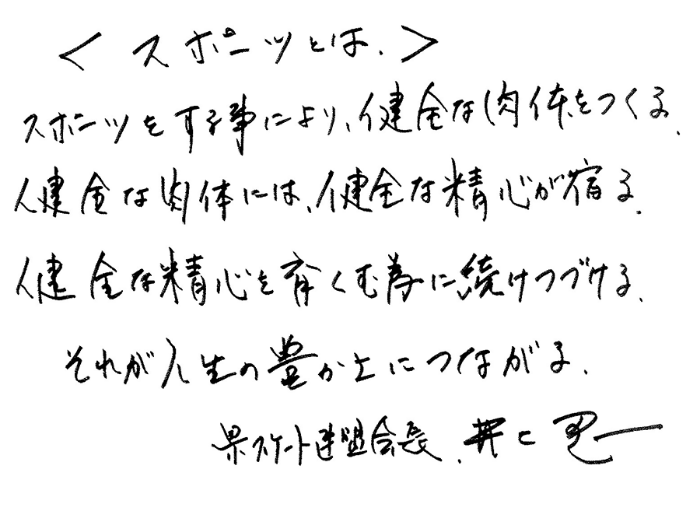 ＜スポーツとは、＞
スポーツをする事により、健全な肉体をつくる、
健全な肉体には、健全な精心が宿る、
健全な精心を育くむ為に続けつづける、
それが人生の豊か上につながる、
県スケート連盟会長、井上